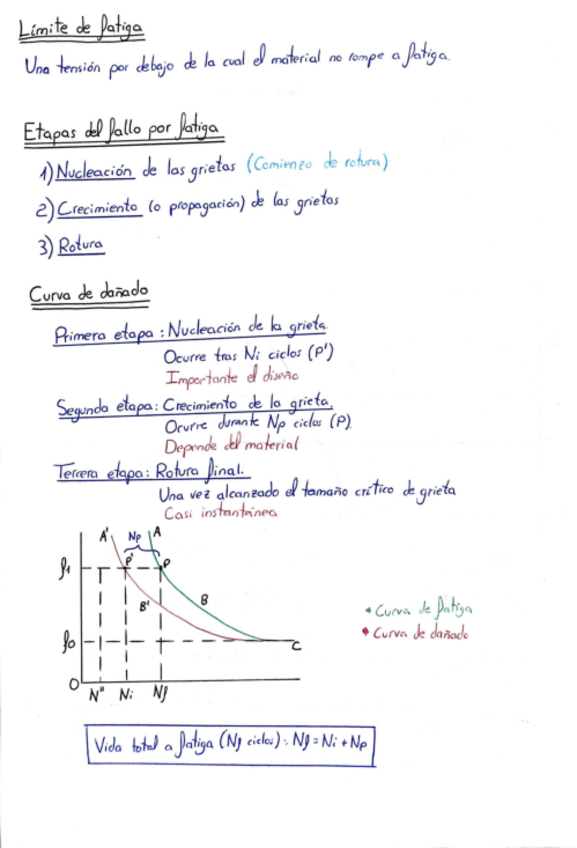 Límite de fatiga
Una tensión por debajo de la cual el material no rompe a fatiga.
Etapas del fallo por fatiga
1) Nucleación de las grietas (Comienzo de rotura)
2) Crecimiento (o propagación) de las grietas
3) Rotura
Curva de dañado
Primera etapa: Nucleación de la grieta.
Ocurre tras Ni ciclos (P')
Importante el diseño
Segunda etapa: Crecimiento de la grieta.
Ocurre durante Np ciclos (P).
Depende del material
Tercera etapa: Rotura final.
Una vez alcanzado el tamaño crítico de grieta
Casi instantánea
A' Np A
f1 P' P
B' B
• Curva de fatiga
• Curva de dañado
f0 C
O
N" Ni Nf
Vida total a fatiga (Nf ciclos): Nf = Ni + Np